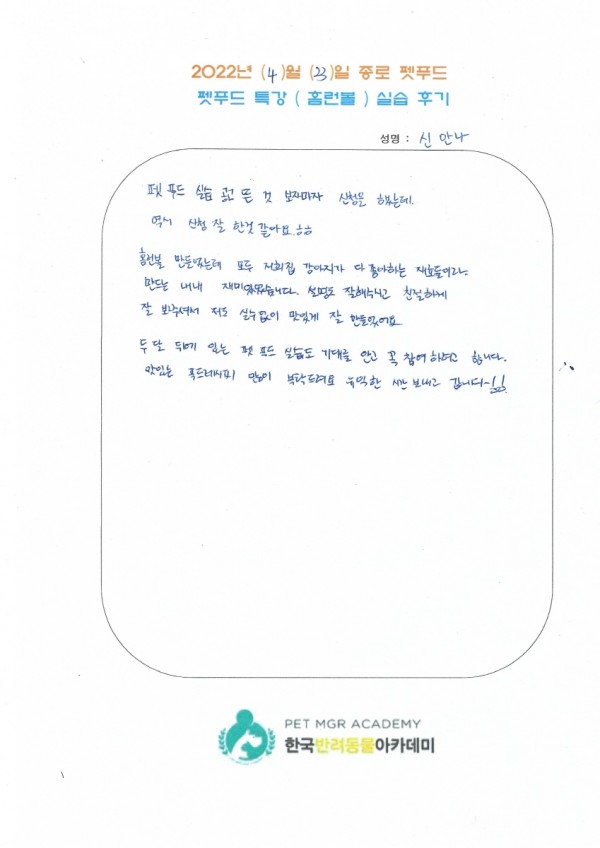 2022년 (4)월 (23)일 종로 펫푸드
펫푸드 특강 ( 홈런볼 ) 실습 후기
성명 : 신안나
펫푸드 실습 공고 뜬 것 보자마자 신청을 했는데.
역시 신청 잘 한것 같아요.ㅎㅎ
홈런볼 만들었는데 모두 저희집 강아지가 다 좋아하는 재료들이라.
만드는 내내 재미있었습니다. 설명도 잘해주시고 친절하게
잘 봐주셔서 저도 실수없이 맛있게 잘 만들었어요
두달 뒤에 있는 펫푸드 실습도 기대를 안고 꼭 참여하려고 합니다.
맛있는 푸드레시피 많이 부탁드려요 유익한 시간 보내고 갑니다~!!
PET MGR ACADEMY
한국반려동물아카데미